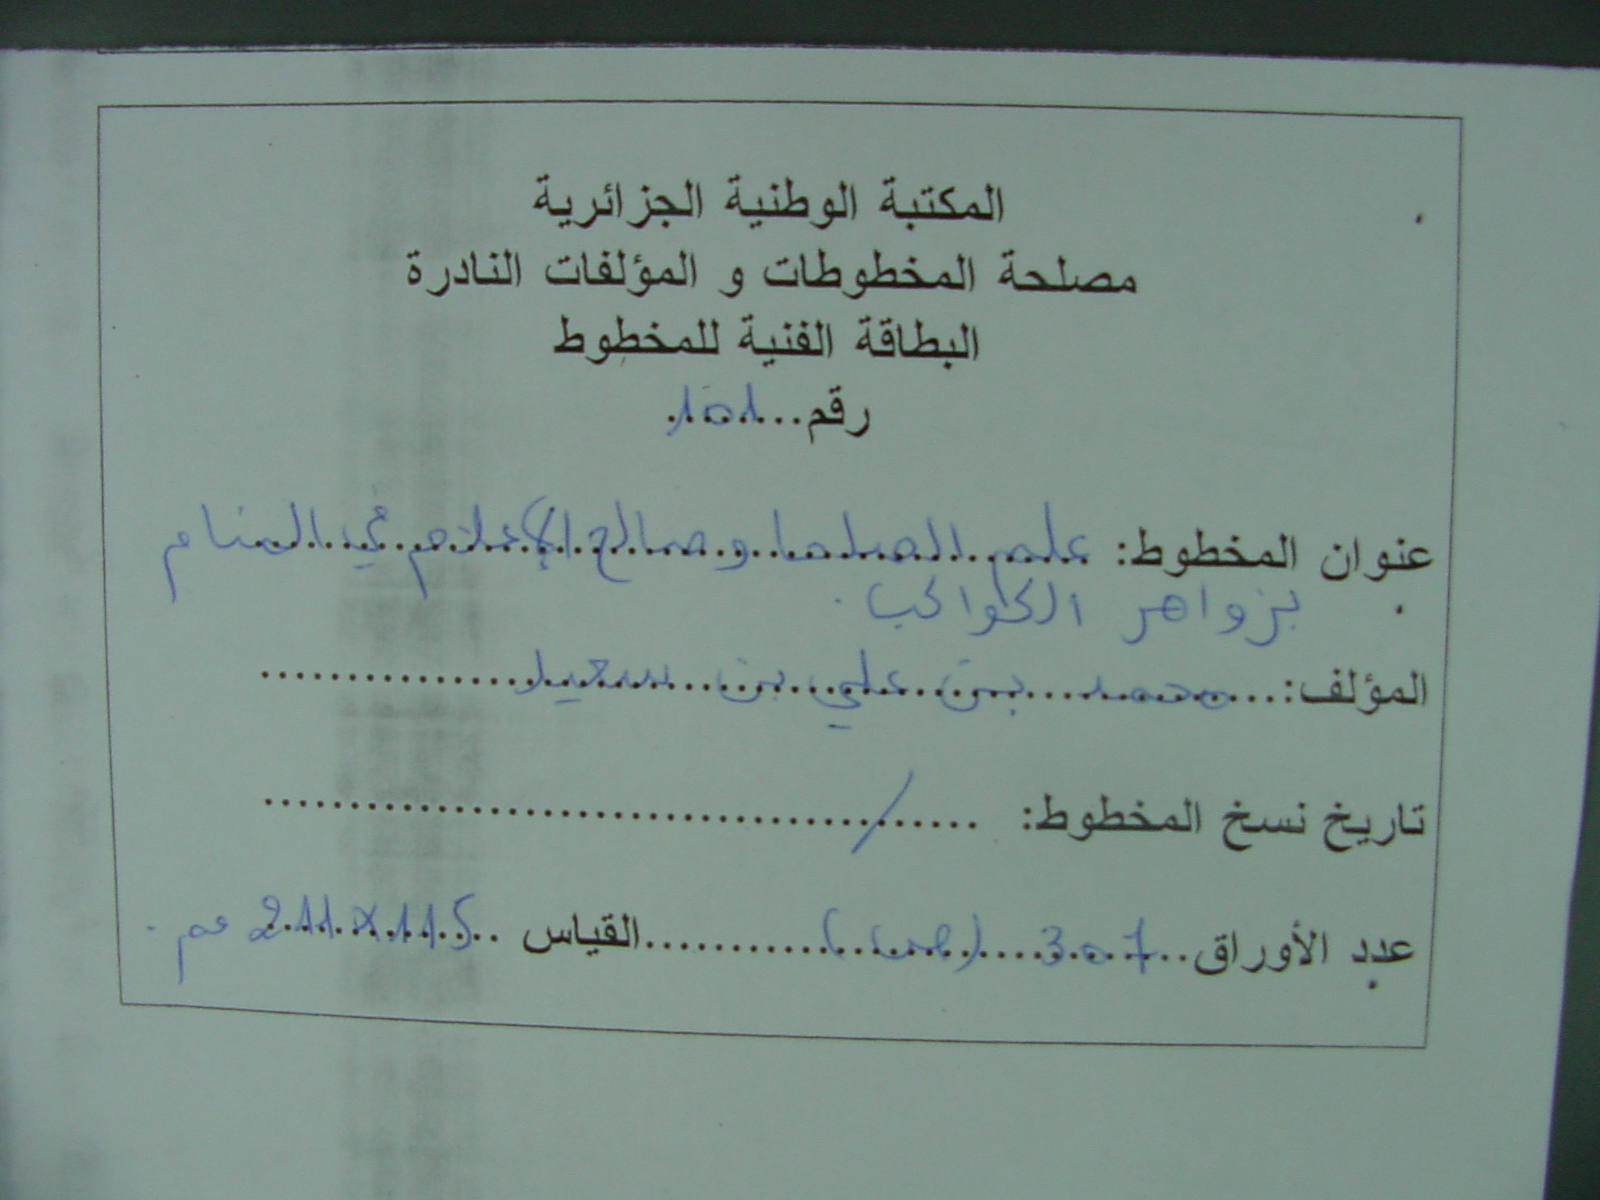 المكتبة الوطنية الجزائرية
مصلحة المخطوطات و المؤلفات النادرة
البطاقة الفنية للمخطوط
رقم...101.
عنوان المخطوط: علم الصلحا وصالح الإعلام في المنام
بزواهر الكواكب.
المؤلف:...محمد بن علي بن سعيد...............
تاريخ نسخ المخطوط: ....../..............................
عدد الأوراق..307....(ص)............القياس ..211x115 مم.